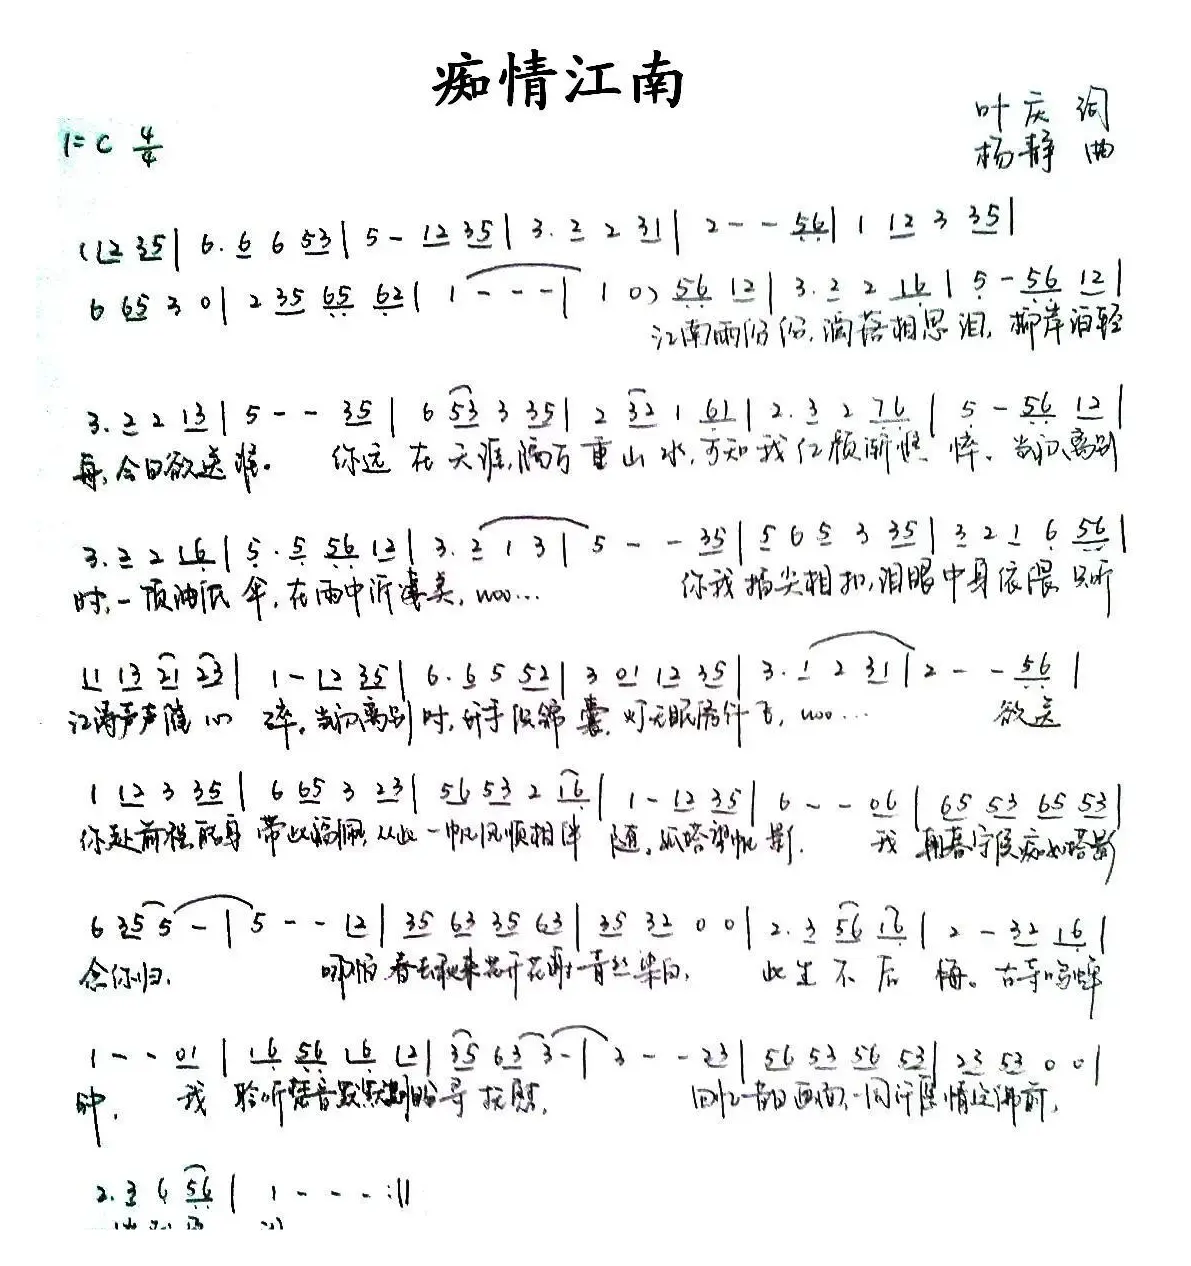 痴情江南
叶庆 词
1=C 4/4
杨静 曲
(12 35| 6.6 6 53| 5 - 12 35| 3.2 2 31| 2 - - 56| 1 12 3 35|
6 65 3 0| 2 35 65 62| 1 - - -| 1 0) 56 12| 3.2 2 16| 5 - 56 12|
江南雨纷纷,滴落相思泪,柳岸泊轻
3.2 2 13| 5 - - 35| 6 53 3 35| 2 32 1 61| 2.3 2 76| 5 - 56 12|
今日欲送谁。 你远在天涯,隔万重山水,可知我红颜渐憔悴。当初离别
3.2 2 16| 5.5 56 12| 3.2 1 3| 5 - - 35| 5 6 5 3 35| 3 2 1 6 56|
时,一顶油纸伞,在雨中 woo... 你我指尖相扣,泪眼中身依偎 只听
11 13 21 23| 1 - 12 35| 6.6 5 52| 3 01 12 35| 3.1 2 31| 2 - - 56|
江涛声声随心碎。当初离别时, 手 锦囊, woo... 欲送
1 12 3 35| 6 65 3 23| 56 53 2 16| 1 - 12 35| 6 - - 06| 65 53 65 53|
你赴前程 带此 从此一帆风顺相伴随。孤塔望帆影. 我 朝暮守候痴如塔影
6 35 5 -| 5 - - 12| 35 63 35 63| 35 32 0 0| 2.3 56 16| 2 - 32 16|
念你归. 哪怕春去秋来花开花谢青丝染白, 此生不后悔。古寺鸣
1 - - 01| 16 56 16 12| 35 63 3 -| 3 - - 23| 56 53 56 53| 23 53 0 0|
钟, 我聆听梵音默默 寻抚慰. 回忆昔日画面,一同许愿情定佛前,
2.3 6 56| 1 - - - :||